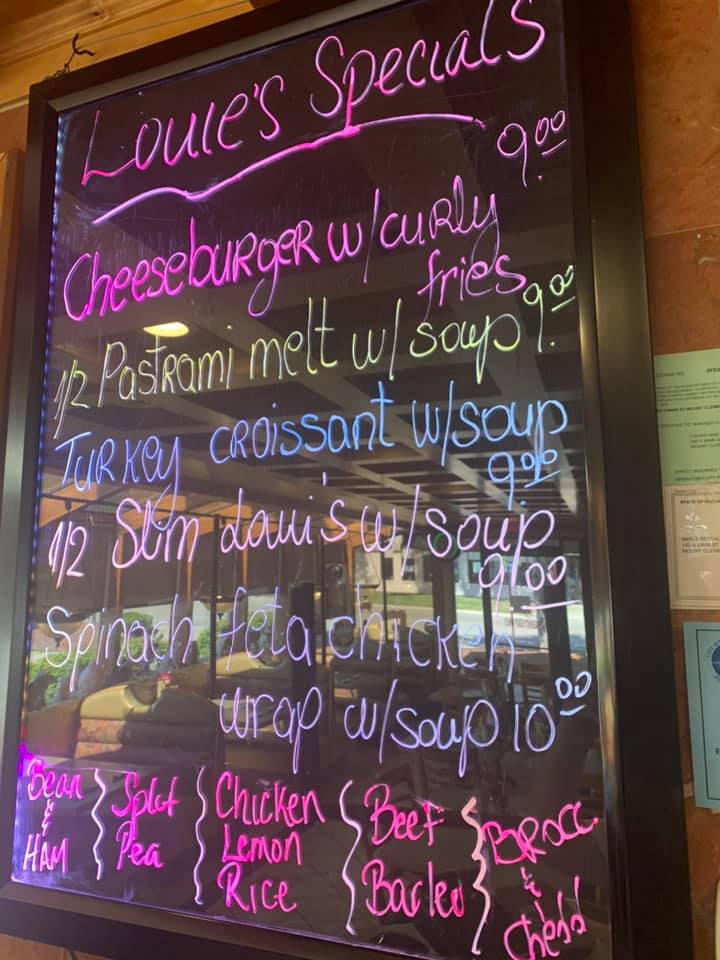 Louie's Specials
9.00
Cheeseburger w/curly
fries
1/2 Pastrami melt w/soup 9.00
Turkey croissant w/soup
9.00
1/2 Slim Loui's w/soup
9.00
Spinach feta chicken
wrap w/soup 10.00
Bean & HAM
Split Pea
Chicken Lemon Rice
Beef Barley
Brocc. &